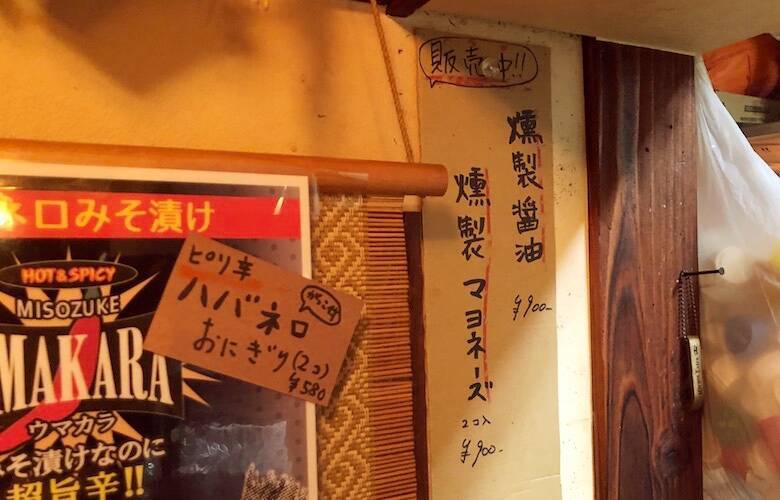 販売中!!
燻製醤油
¥900-
燻製マヨネーズ
2コ入
¥900-
ネロみそ漬け
HOT&SPICY
MISOZUKE
MAKARA
ウマカラ
そ漬けなのに
超旨辛!!
ピリ辛
ハバネロ
おにぎり(2コ)
¥580